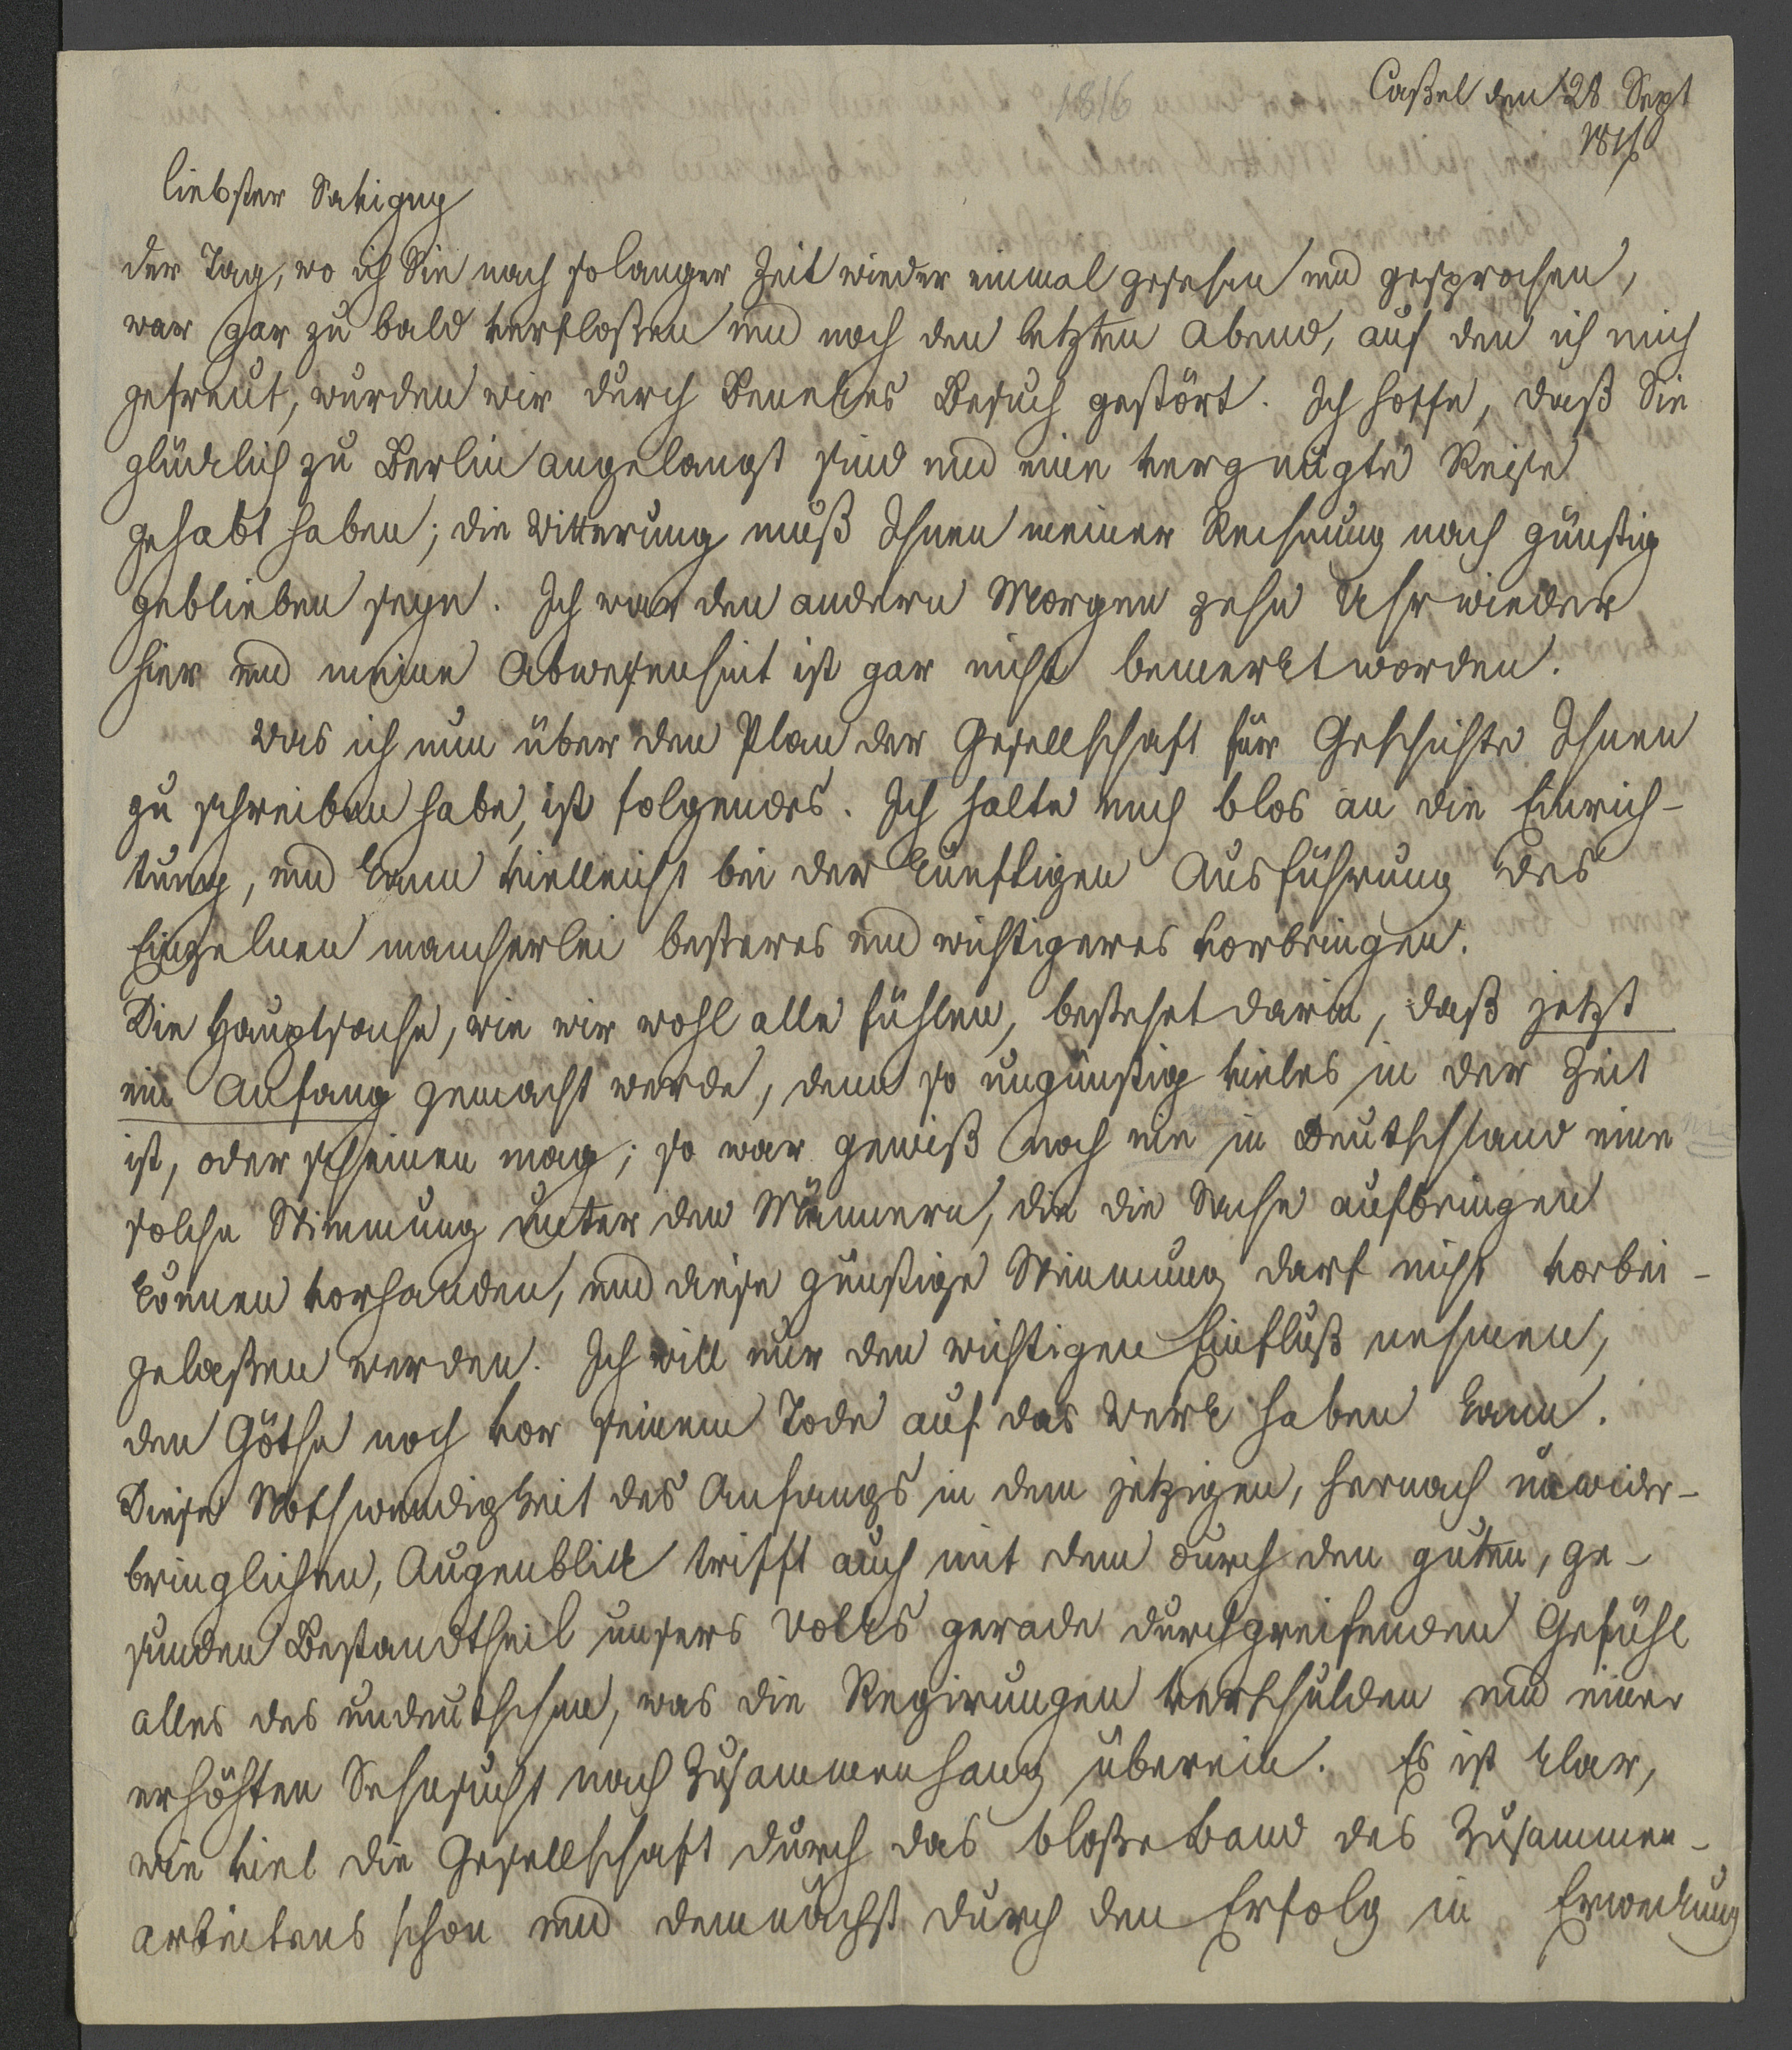 1816
Caßel den 28 Sept
1816
liebster Savigny
der Tag, wo ich Sie nach solanger Zeit wieder einmal gesehen und gesprochen,
war gar zu bald verfloßen und noch den letzten Abend, auf den ich mich
gefreut, wurden wir durch Beneckes Besuch gestört. Ich hoffe, daß Sie
glücklich zu Berlin angelangt sind und eine vergnügte Reise
gehabt haben; die Witterung muß Ihnen meiner Rechnung nach günstig
geblieben seyn. Ich war den andern Morgen zehn Uhr wieder
hier und meine Abwesenheit ist gar nicht bemerkt worden.
Was ich nun über den Plan der Gesellschaft für Geschichte Ihnen
zu schreiben habe, ist folgendes. Ich halte mich blos an die Einrich-
tung, und kann vielleicht bei der künftigen Ausführung des
Einzelnen mancherlei besteres und wichtigeres vorbringen.
Die Hauptsache, wie wir wohl alle fühlen, bestehet darin, daß jetzt
ein Anfang gemacht werde, denn so ungünstig vieles in der Zeit
ist, oder scheinen mag; so war gewiß noch nie in Deutschland eine
solche Stimmung unter den Männern, die die Sache aufbringen
können vorhanden, und diese günstige Stimmung darf nicht vorbei-
gelaßen werden. Ich will nur den wichtigen Einfluß nehmen,
den Göthe noch vor seinem Tode auf das Werk haben kann.
Diese Nothwendigkeit des Anfangs in dem jetzigen, hernach unwider-
bringlichen, Augenblick trifft auch mit dem durch den guten, ge-
sunden Bestandtheil unsers Volks gerade durchgreifenden Gefühl
alles des undeutschen, was die Regirungen verschulden und einer
erhöhten Sehnsucht nach Zusammenhang überein. Es ist klar,
wie viel die Gesellschaft durch das bloße Band des Zusammen-
arbeitens schon und demnächst durch den Erfolg in Erweckung